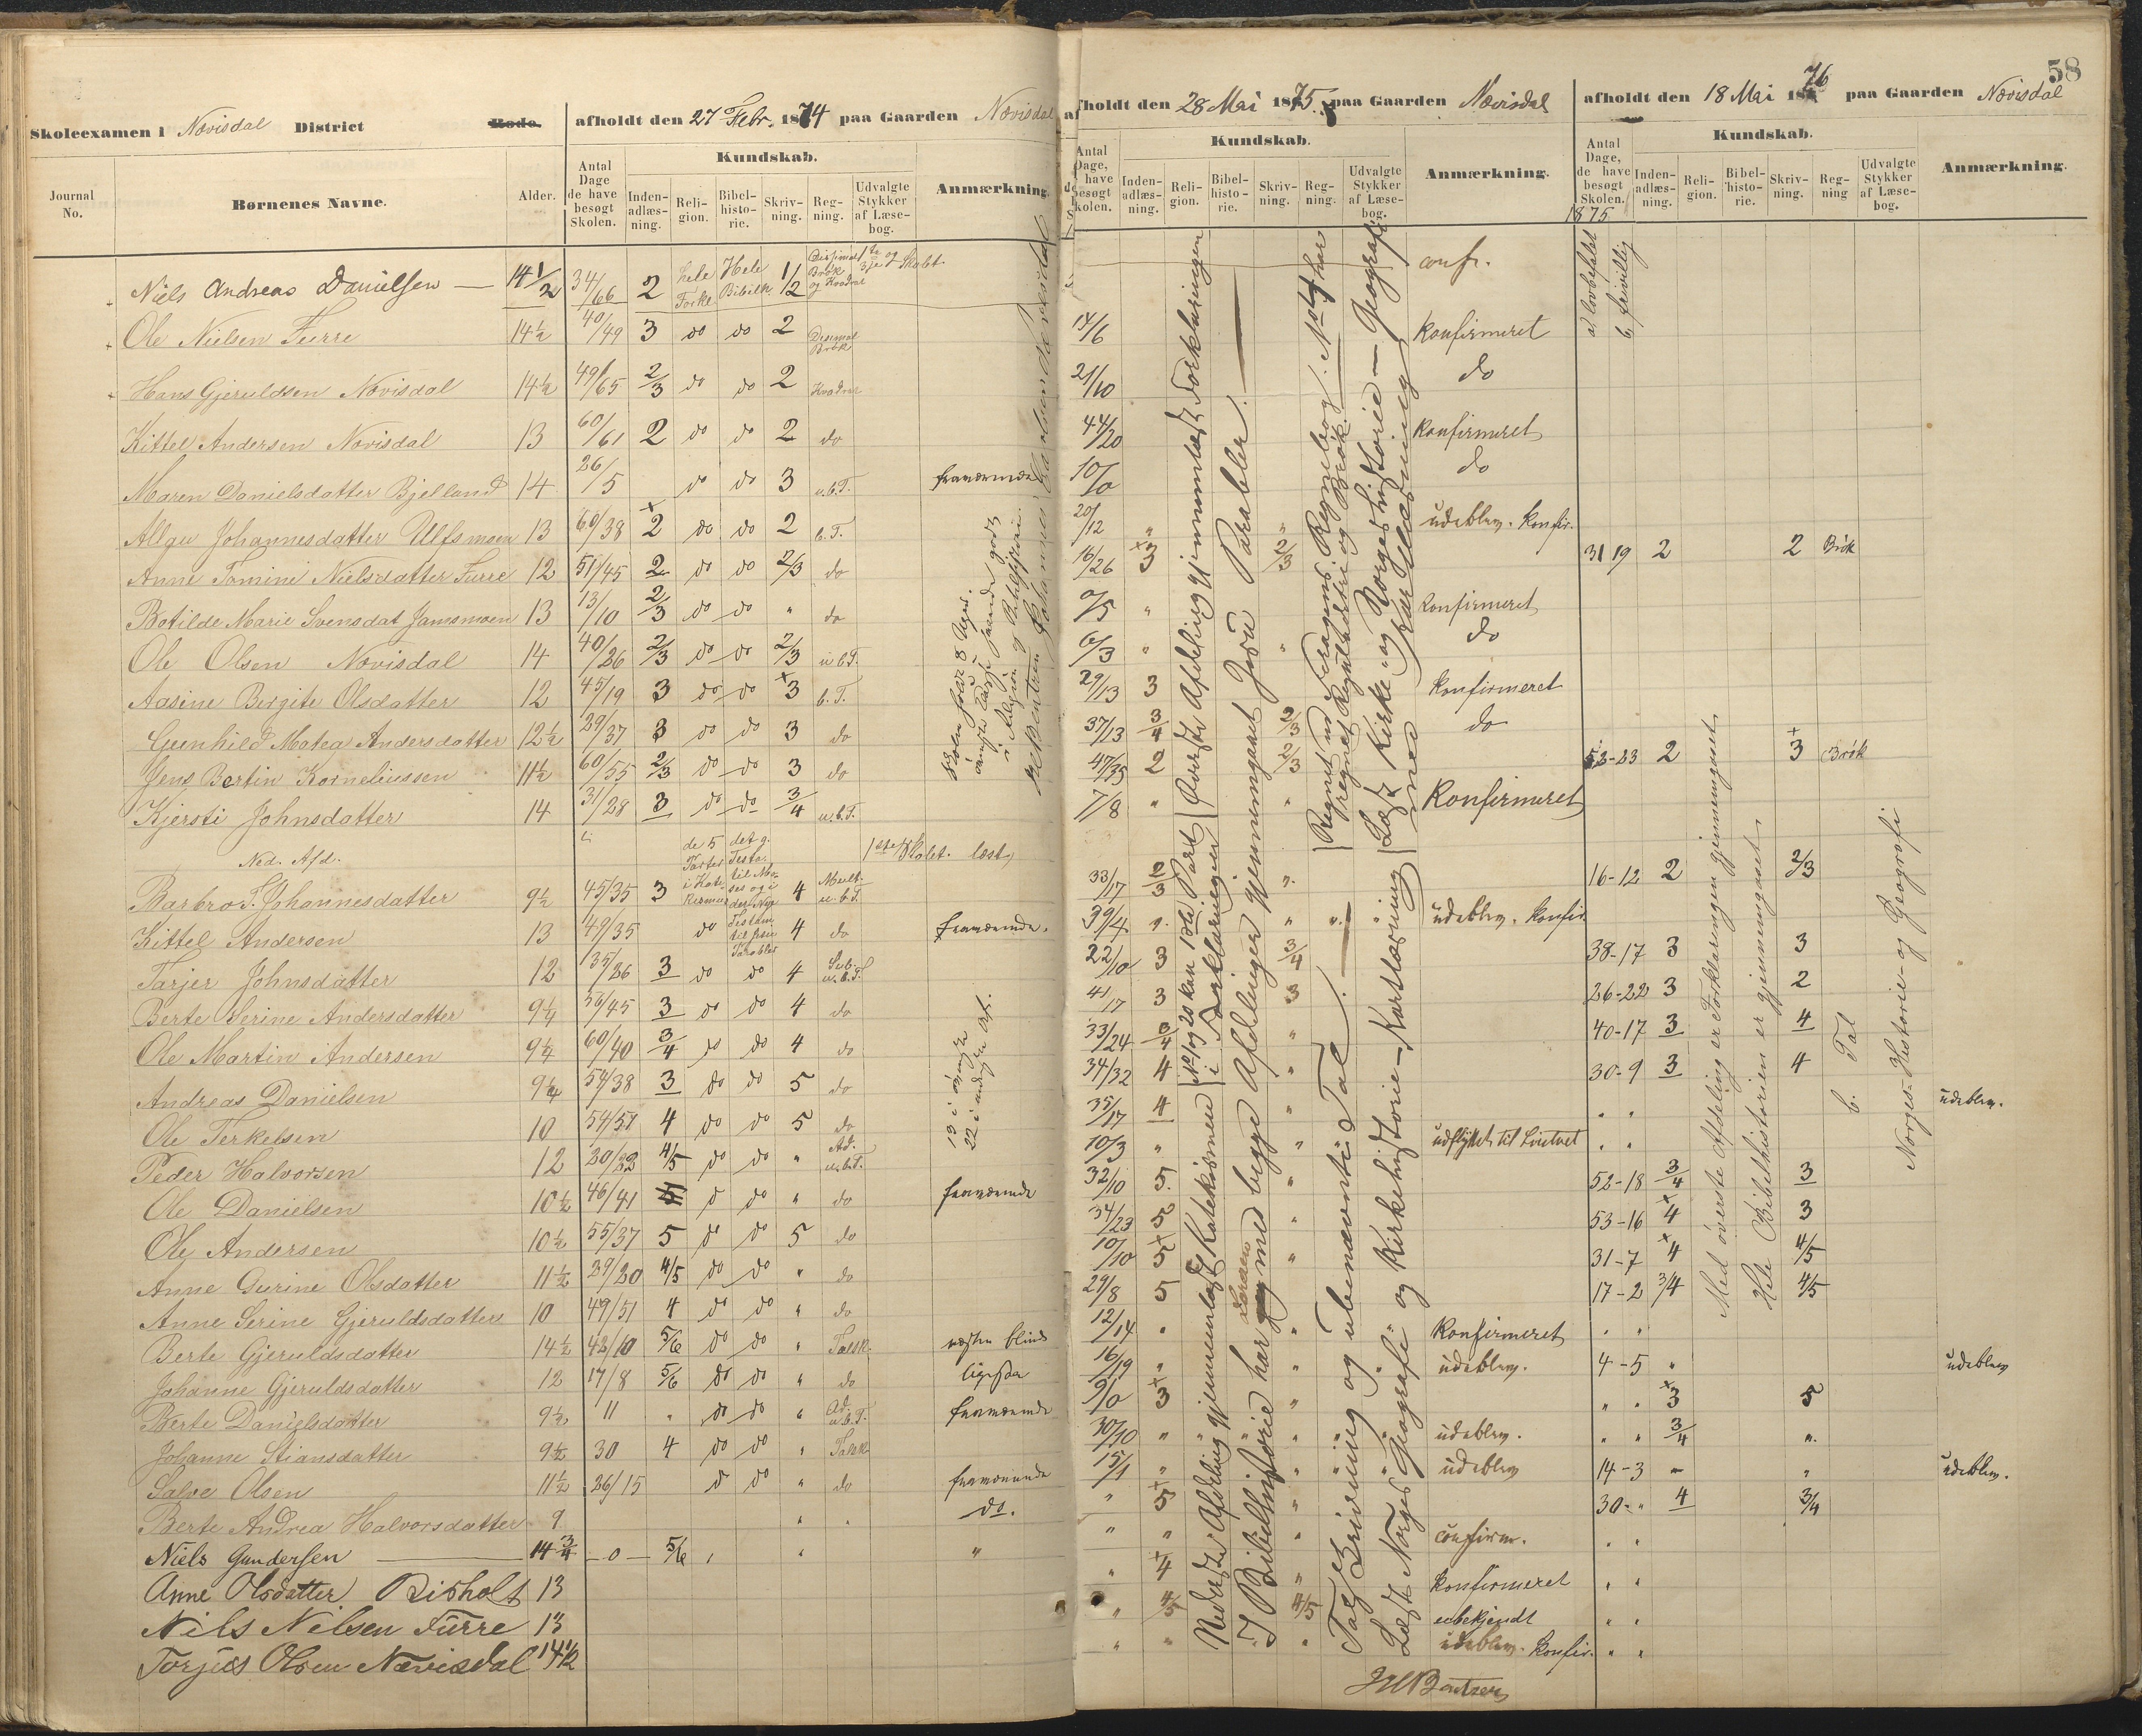 58
Skoleexamen i Nævisdal District Rode. afholdt den 27 Febr. 1874 paa Gaarden Nævisdal
afholdt den 28 Mai 1875. paa Gaarden Nævisdal
afholdt den 18 Mai 1876 paa Gaarden Nævisdal
Journal No. Børnenes Navne. Alder. Antal Dage de have besøgt Skolen. Kundskab. Inden- adlæs- ning. Reli- gion. Bibel- histo- rie. Skriv- ning. Reg- ning. Udvalgte Stykker af Læse- bog. Anmærkning.
Antal Dage, de have besøgt Skolen. Kundskab. Inden- adlæs- ning. Reli- gion. Bibel- histo- rie. Skriv- ning. Reg- ning. Udvalgte Stykker af Læse- bog. Anmærkning.
Antal Dage, de have besøgt Skolen. Kundskab. Inden- adlæs- ning. Reli- gion. Bibel- histo- rie. Skriv- ning. Reg- ning Udvalgte Stykker af Læse- bog. Anmærkning.
1875
a) lovbefalet
b. frivillig
Niels Andreas Danielsen 14 1/2 34/66 2 hele Forkl. Hele Bibelh. 1/2 Decimal Brøk og Kvadrat 1ste og 3je Skolet. confr.
Ole Nielsen Furre 14 1/2 40/49 3 do do 2 Desimal Brøk 14/6 konfirmeret
Hans Gjeruldsen Nævisdal 14 1/2 49/65 2/3 do do 2 Kvadrat 21/10 do
Kittel Andersen Nævisdal 13 60/61 2 do do 2 do 44/20 konfirmeret
Maren Danielsdatter Bjelland 14 26/5 do do 3 u.b.T. fraværende 10/0 do
Allgu Johannesdatter Ulfsmoen 13 60/38 2 do do 2 b.T. 20/12 " " udeblev. konfir.
Anne Tomine Nielsdatter Furre 12 51/45 2 do do 2/3 do 16/26 3 2/3 31 19 2 2 Brøk
Botilde Marie Svensdat Jamsmoen 13 13/10 2/3 do do " do 0/5 " konfirmeret
Ole Olsen Nævisdal 14 40/26 2/3 do do 2/3 u b T. 6/3 " " do
Aasine Bergite Olsdatter 12 45/19 3 do do 3 b.T. 29/13 3 konfirmeret
Gunhild Matea Andersdatter 12 1/2 29/37 3 do do 3 do 37/13 3/4 2/3 do
Jens Bertin Korneliussen 11 1/2 60/55 2/3 do do 3 do 47/35 2 2/3 52-23 2 3 Brøk
Kjersti Johnsdatter 14 31/28 3 do do 3/4 u.b.T. 7/8 " " Konfirmeret
Ned. Afd. de 5 Parter i Kate- kismus det g. Testa. til Mo- ses og i det Nye Testam til Jesu Parabler 1ste Skolet. læst
Barbro T. Johannesdatter 9 1/2 45/35 3 4 Mult. u.b.T. 33/17 2/3 " 16-12 2 2/3
Kittel Andersen 13 49/35 do 4 do fraværende. 39/4 " " " " udeblev. konfir.
Tarjer Johnsdatter 12 35/26 3 do do 4 Sub. u.b.T. 22/10 3 3/4 38-17 3 3
Berte Serine Andersdatter 9 1/4 56/45 3 do do 4 do 41/17 3 3 26-22 3 2
Ole Martin Andersen 9 1/4 60/40 3/4 do do 4 do 33/24 3/4 " 40-17 3 4
Andreas Danielsen 9 1/4 54/38 3 do do 5 do 34/32 4 " 30-9 3 4
Ole Terkelsen 10 54/51 4 do do 5 do 35/17 4 " " " udeblev.
Peder Halvorsen 12 20/22 4/5 do do " Ad. u.b.T. 10/3 " " udflyttet til " "
Ole Danielsen 10 1/2 46/41 do do " do fraværende 32/10 5. " 52-18 3/4 3
Ole Andersen 10 1/2 55/37 5 do do 5 do 34/23 5 " 53-16 4 3
Anne Gurine Olsdatter 11 1/2 29/20 4/5 do do " do 10/10 5 " 31-7 4 4/5
Anne Serine Gjeruldsdatter 10 49/51 4 do do " do 29/8 5 17-2 3/4 4/5
Berte Gjeruldsdatter 14 1/2 42/10 5/6 do do " Talsk. næsten blind 12/14 " " Konfirmeret " "
Johanne Gjeruldsdatter 12 17/8 5/6 do do " do ligesaa 16/19 " " udeblev. 4-5 " udeblev
Berte Danielsdatter 9 1/2 11 " do do " Ad. u.b.T. fraværende 9/0 3 " " " 3 5
Johanne Stiansdatter 9 1/2 30 4 do do " Talsk. 30/10 " " " " " udeblev. " " 3/4 "
Salve Olsen 11 1/2 26/15 do do " do fraværende 15/1 " " " " udeblev 14-3 - " udeblev.
Berte Andrea Halvorsdatter 9 " " do. " 5 " 30- " 4 3/4
Niels Gundersen 14 3/4 - 0 - 5/6 " " " " " " confirm. " "
Anne Olsdatter Risholt 13 " 4 " konfirmeret " "
Nils Nilsen Furre 13 " 4/5 4/5 ubekjendt " "
Torjus Olsen Nævisdal 14 1/2 " " " udeblev. konfir. " "
Skolen holdt 8 Uger.
13 i øverste
22 i nedre Af.
Øverste Afdeling gjennemlæst Forklaringen
No 1 og 2 kan 1ste Part i Forklaringen
Nederste Afdeling gjennemlæst Katekismen
I Bibelhistorie har Læreren med begge Afdelinger gjennemgaaet Jesu Parabler.
Regnet nu Regnebog. No 4 har regnet Reguladetri og Brøk.
Talskrivning og ubenævnte Tal.
Læst Kirke- og Norgeshistorie - Geografi med Kartlæsning
Læst Norges Geografi og Kirkehistorie - Kartlæsning
Med øverste Afdeling er Forklaringen gjennemgaaet.
Hele Bibelhistorien er gjennemgaaet.
b. Tal
Norges-Historie- og Geografi